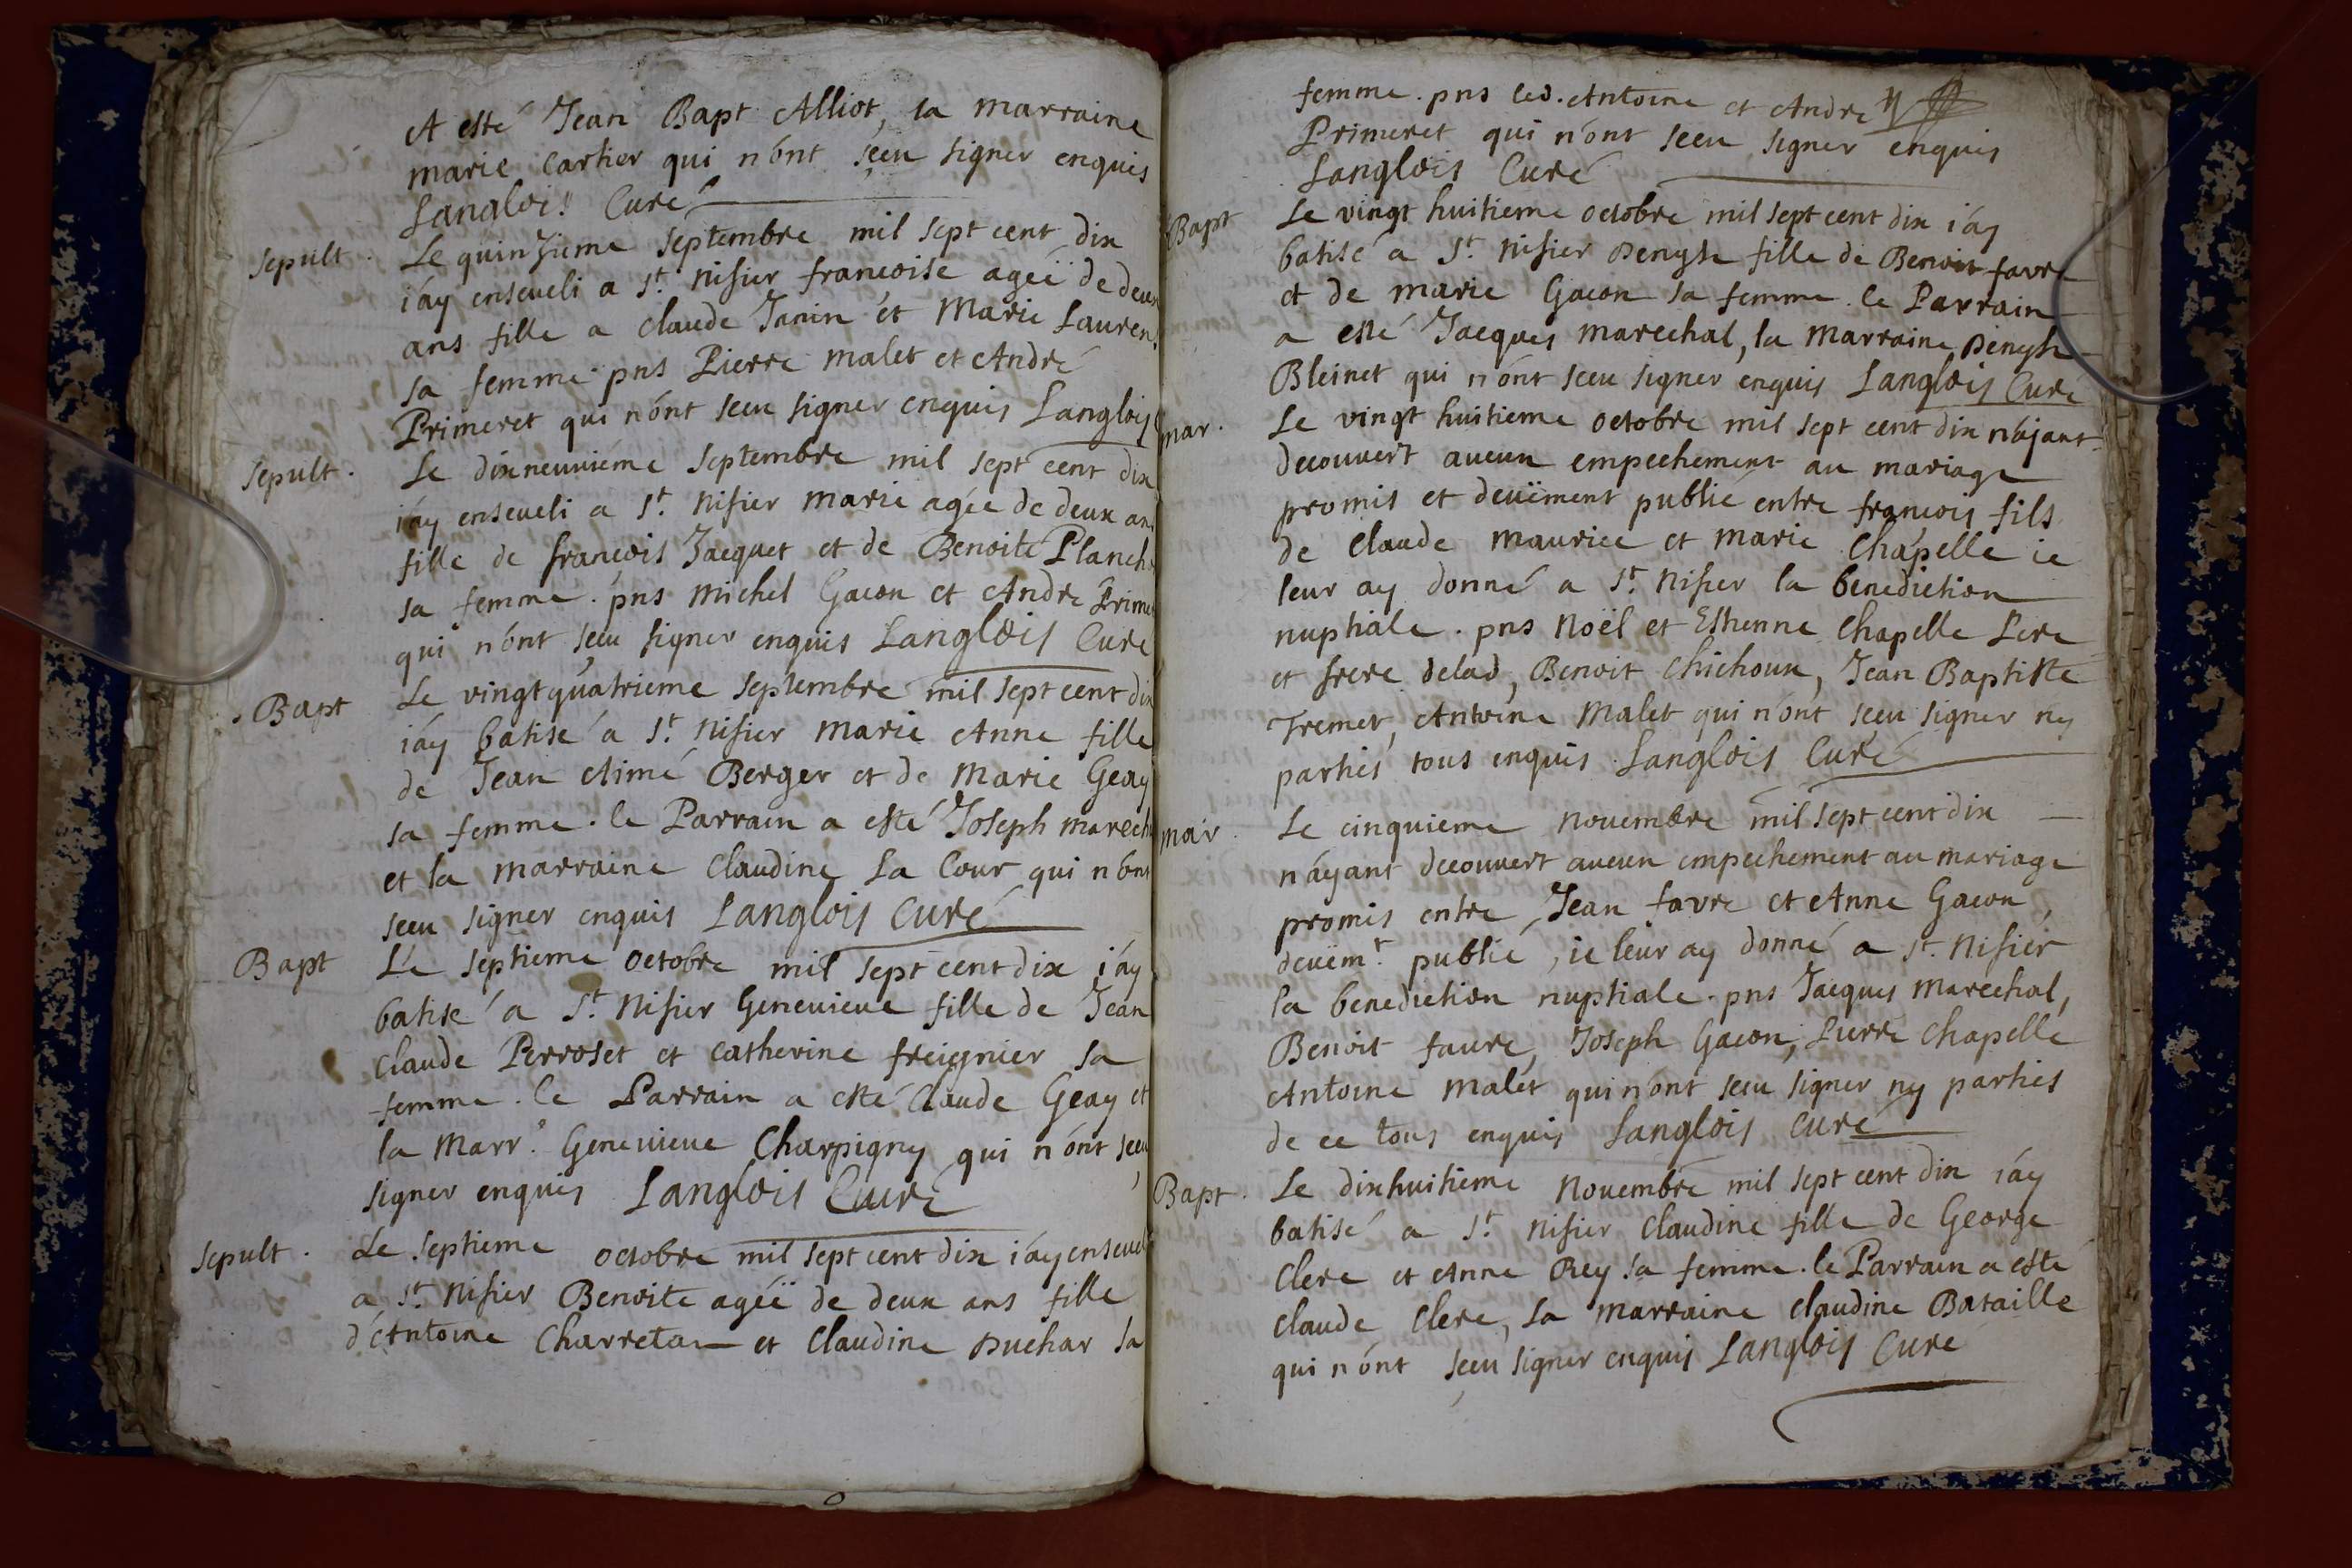 A esté Jean Bapt Alliot, la marraine
marie cartier qui n'ont sceu signer enquis
Langlois Curé
Sepult. Le quinzieme septembre mil sept cent dix
i'ay enseveli a St. Nisier francoise agéé de deux
ans fille a claude Janin et Marie Lauren
sa femme pns Pierre malet et André
Primeret qui n'ont sceu signer enquis Langlois
Sepult. Le dixneuviéme septembre mil sept cent dix
i'ay enseveli a St. Nisier marie agée de deux ans
fille de francois Jacquet et de Benoite Planch
sa femme. pns michel Gacon et André Prime
qui n'ont sceu signer enquis Langlois Curé
Bapt Le vingtquatrieme septembre mil sept cent dix
i'ay batisé a St. Nisier marie Anne fille
de Jean Aimé Berger et de Marie Geay
sa femme. le Parrain a esté Joseph marech
et la marraine Claudine La Cour qui n'ont
sceu signer enquis Langlois Curé
Bapt Le septieme octobre mil sept cent dix i'ay
batisé a St. Nisier Genevieve fille de Jean
claude Perroset et catherine freignier sa
femme. le Parrain a esté Claude Geay et
la Marr.e Genevieve Charpigny qui n'ont sceu
signer enquis Langlois Curé
Sepult. Le septieme octobre mil sept cent dix i'ay enseveli
a St. Nisier Benoite agéé de deux ans fille
d'Antoine Charretan et Claudine Duchar sa
femme. pns led. Antoine et André
Primeret qui n'ont sceu signer enquis
Langlois Curé
Bapt Le vingt huitieme octobre mil sept cent dix i'ay
batisé a St. Nisier Denyse fille de Benoit favre
et de marie Gacon sa femme. le Parrain
a esté Jacques marechal, la Marraine Denyse
Bleinet qui n'ont sceu signer enquis Langlois Curé
mar. Le vingt huitieme octobre mil sept cent dix n'ajant
decouvert aucun empechement au mariage
promis et deuëment publié entre francois fils
de Claude maurice et marie Chapelle ie
leur ay donné a St. Nisier la benediction
nuptiale. pns Noël et Estienne Chapelle Pere
et frere delad, Benoit Chichoux, Jean Baptiste
Tremet, Antoine Malet qui n'ont sceu signer ny
parties tous enquis Langlois Curé
mar. Le cinquieme novembre mil sept cent dix
n'ayant decouvert aucun empechement au mariage
promis entre Jean favre et Anne Gacon,
deuëm.t publié, ie leur ay donné a St. Nisier
la benediction nuptiale. pns Jacques marechal,
Benoit faure, Joseph Gacon, Pierre Chapelle
Antoine malet qui n'ont sceu signer ny parties
de ce tous enquis Langlois Curé
Bapt. Le dixhuitieme Novembre mil sept cent dix i'ay
batisé a St. Nisier Claudine fille de George
Clere et Anne Rey sa femme. le Parrain a esté
Claude Clere, la marraine claudine Bataille
qui n'ont sceu signer enquis Langlois Curé